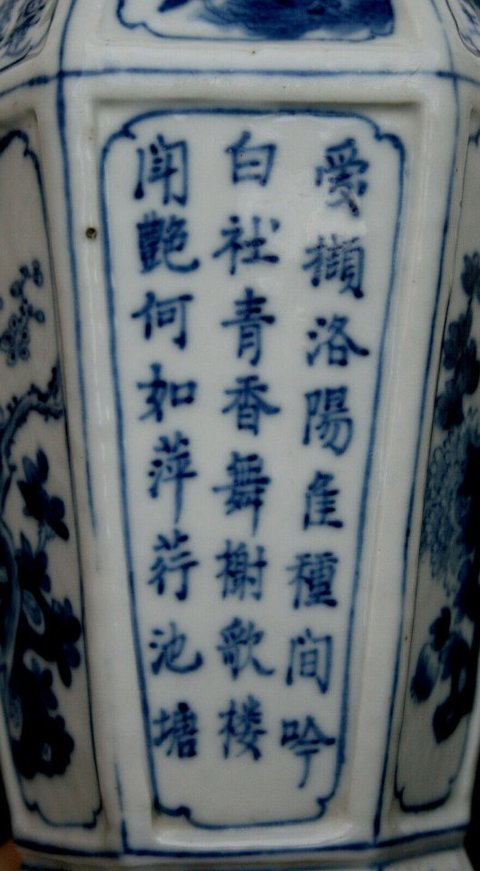 愛擷洛陽隹種間吟
白社青香舞榭歌楼
闬艶何如萍荇池塘